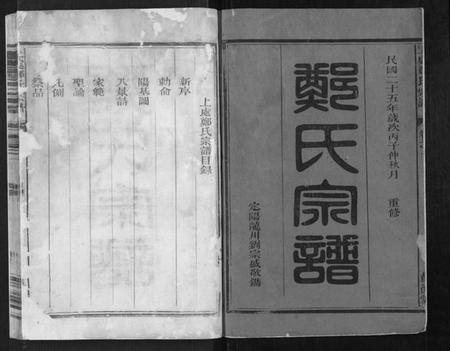 民國二十五年歲次丙子仲秋月 重修
鄭氏宗譜
定陽龍川劉宗盛敬鐫
上處鄭氏宗譜目錄
新序
勅命
陽基圖
八景詩
家範
聖諭
凡例
祭品